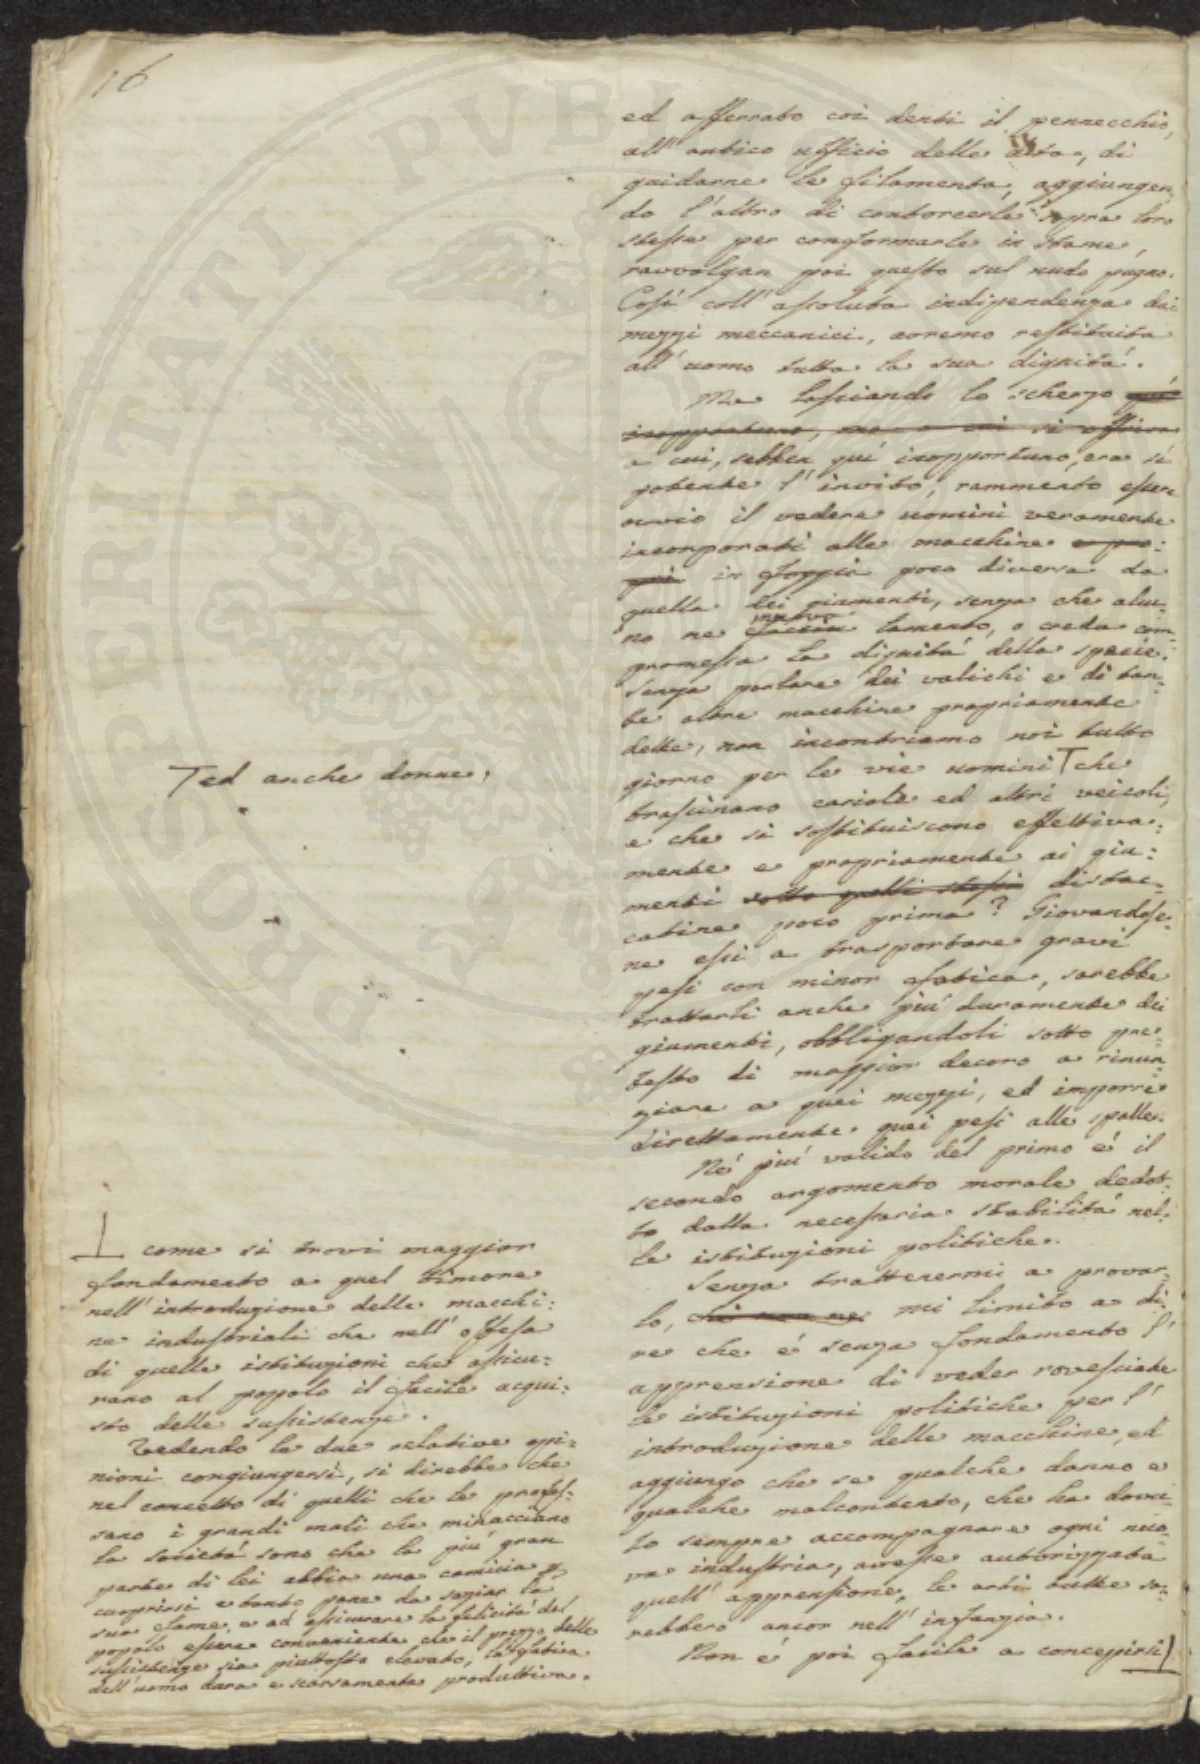 16
ed afferrato coi denti il pennecchio,
all' antico ufficio delle dita, di
guidarne le filamenta, aggiungen
do l'altro di contorcerle sopra loro
stesse per conformarle in stame,
ravvolgan poi questo sul nudo pugno.
Così coll' assoluta indipendenza dai
mezzi meccanici, avremo restituita
all' uomo tutta la sua dignità.
Ma lasciando lo scherzo qui
inopportuno, ma a cui si offriva
a cui, sebben quì inopportuno, era sì
potente l' invito, rammento esser
ovvio il vedere uomini veramente
incorporati alle macchine
in foggia poco diversa da
quella dei giumenti, senza che alcu-
no ne muova lamento, o creda com-
promessa la dignità della specie.
Senza parlare dei valichi e di tan-
te altre macchine propriamente
dette, non incontriamo noi tutto
giorno per le vie uomini T che
trascinano cariole ed altri veicoli,
e che si sostituiscono effettiva:
mente e propriamente ai giu:
menti sotto quelli stessi distac-
catine poco prima? Giovandose-
ne essi a trasportare gravi
pesi con minor fatica, sarebbe
trattarli anche più duramente dei
giumenti, obbligandoli sotto pre-
testo di maggior decoro a rinun-
ziare a quei mezzi, ed imporre
direttamente quei pesi alle spalle.
Nè più valido del primo è il
secondo argomento morale dedot-
to dalla necessaria stabilità nel:
le istituzioni politiche.
Senza trattenermi a provar-
lo, chi non ne mi limito a di-
re che è senza fondamento l'
apprensione di veder rovesciate
le istituzioni politiche per l'
introduzione delle macchine, ed
aggiungo che se qualche danno e
qualche malcontento, che ha dovu-
to sempre accompagnare ogni nuo-
va industria, avesse autorizzata
quell' apprensione, le arti tutte sa-
rebbero ancor nell' infanzia.
Non è poi facile a concepirsi
T ed anche donne,
come si trovi maggior
fondamento a quel timore
nell' introduzione delle macchi:
ne industriali che nell' offesa
di quelle istituzioni che assicu:
rano al popolo il facile acqui:
sto delle sussistenze.
Vedendo le due relative opi:
nioni congiungersi, si direbbe che
nel concetto di quelli che le profes:
sano i grandi mali che minacciano
la società sono che la più gran
parte di lei abbia una camicia p
cuoprirsi e tanto pane da saziar la
sua fame, e ad assicurare la felicità del
popolo essere conveniente che il prezzo delle
sussistenze sia piuttosto elevato, la fatica
dell' uomo dura e scarsamente produttiva.
PROSPERITATI PUBLICAE